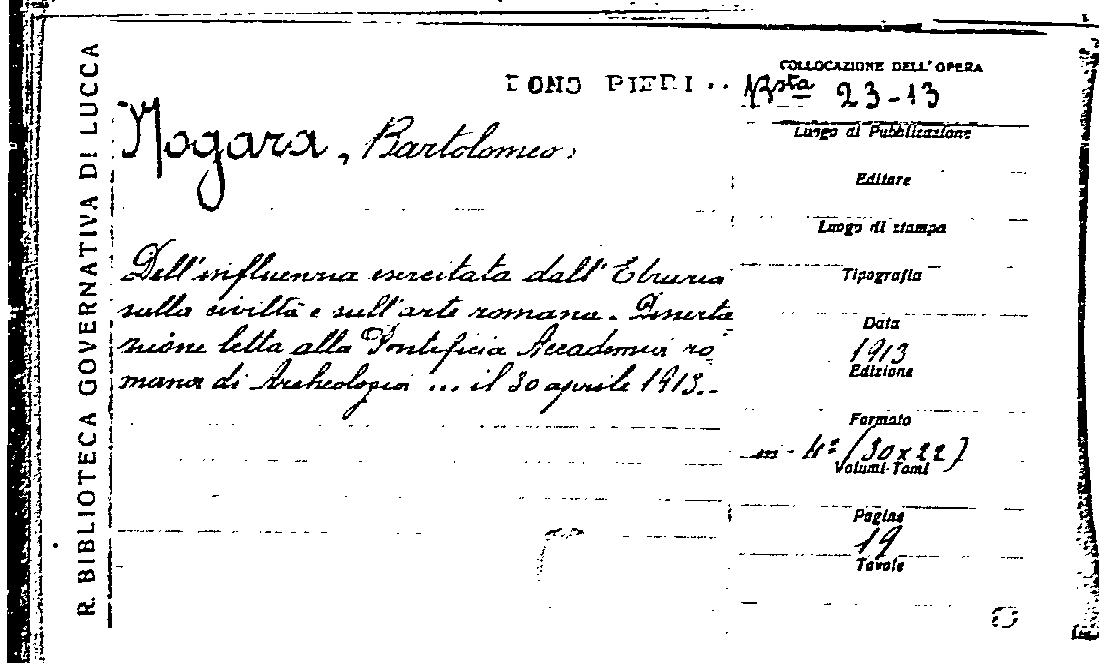 R. BIBLIOTECA GOVERNATIVA DI LUCCA
DONO PIERI..
COLLOCAZIONE DELL'OPERA
Bsta 23-13
Nogara, Bartolomeo.
Dell'influenza esercitata dall'Etruria
sulla civiltà e sull'arte romana. Disserta
zione letta alla Pontificia Accademia ro
mana di Archeologia ... il 30 aprile 1913.-
Luogo di Pubblicazione
Editore
Luogo di stampa
Tipografia
Data
1913
Edizione
Formato
in-4º (30x22)
Volumi-Tomi
Pagine
19
Tavole